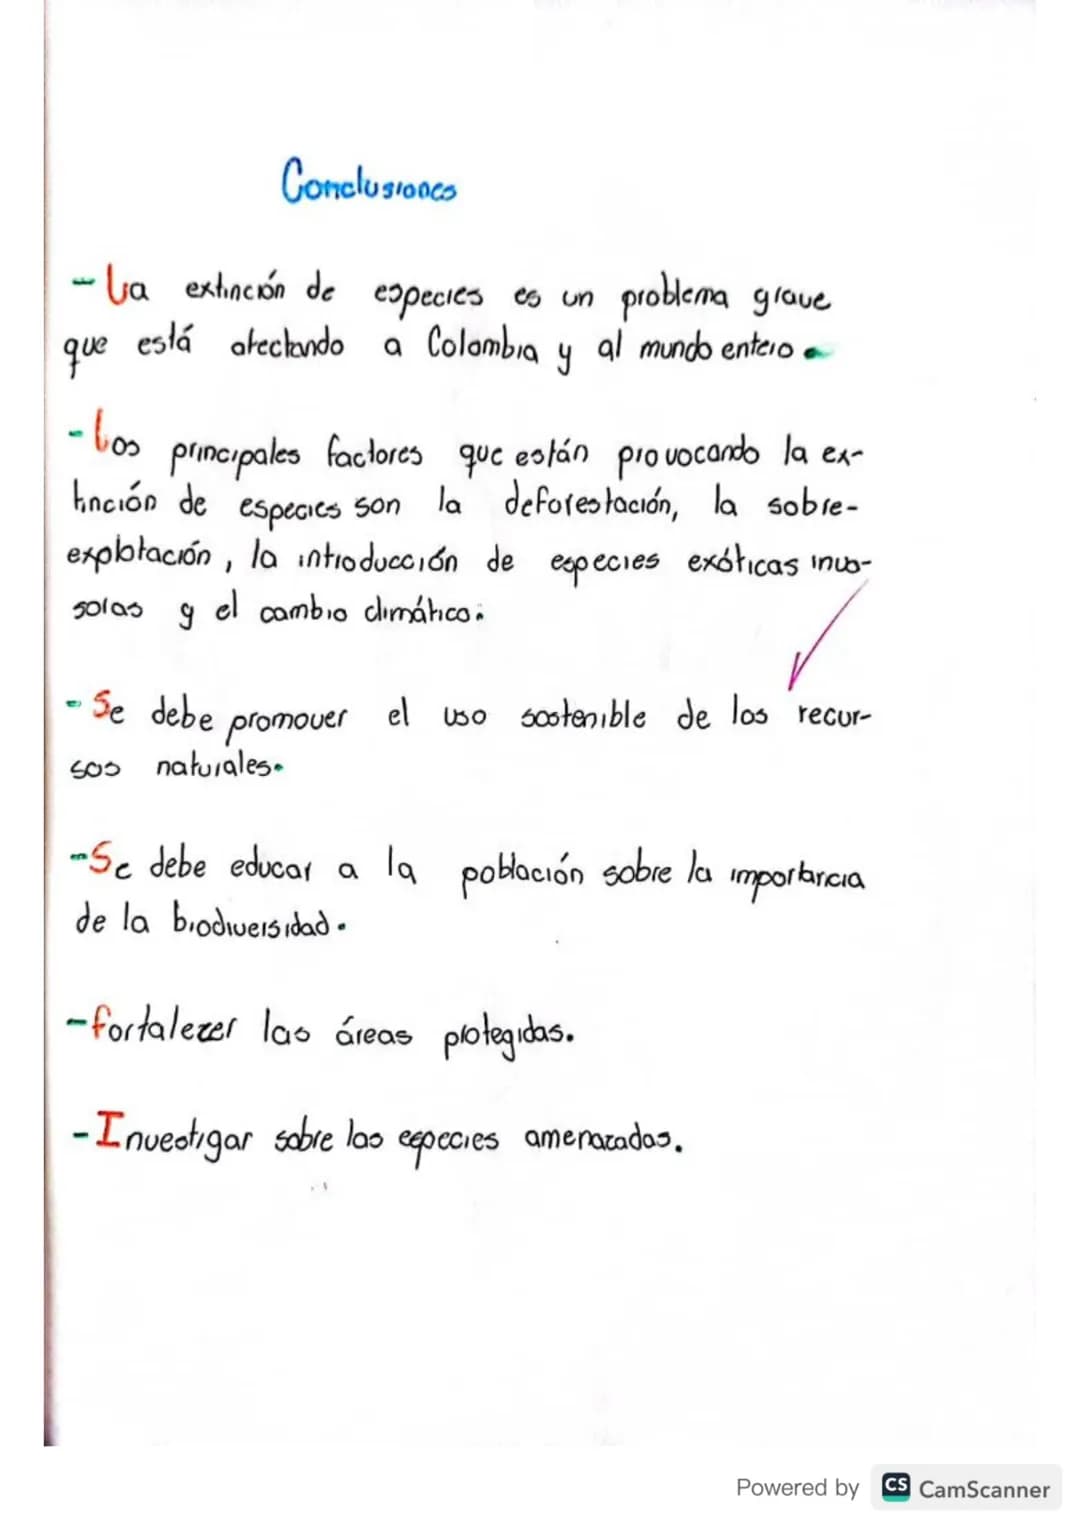 Conclusiones
- La extinción de especies es un problema grave
que está afectando a Colombia y al mundo entero.
- Los principales factores que están provocando la ex-
tinción de especies son la deforestación, la sobre-
explotación, la introducción de especies exóticas inva-
soras y el cambio climático.
- Se debe promover el uso sostenible de los recur-
sos naturales.
- Se debe educar a la población sobre la importancia
de la biodiversidad.
- Fortalezer las áreas protegidas.
- Investigar sobre las especies amenazadas.
Powered by CS CamScanner